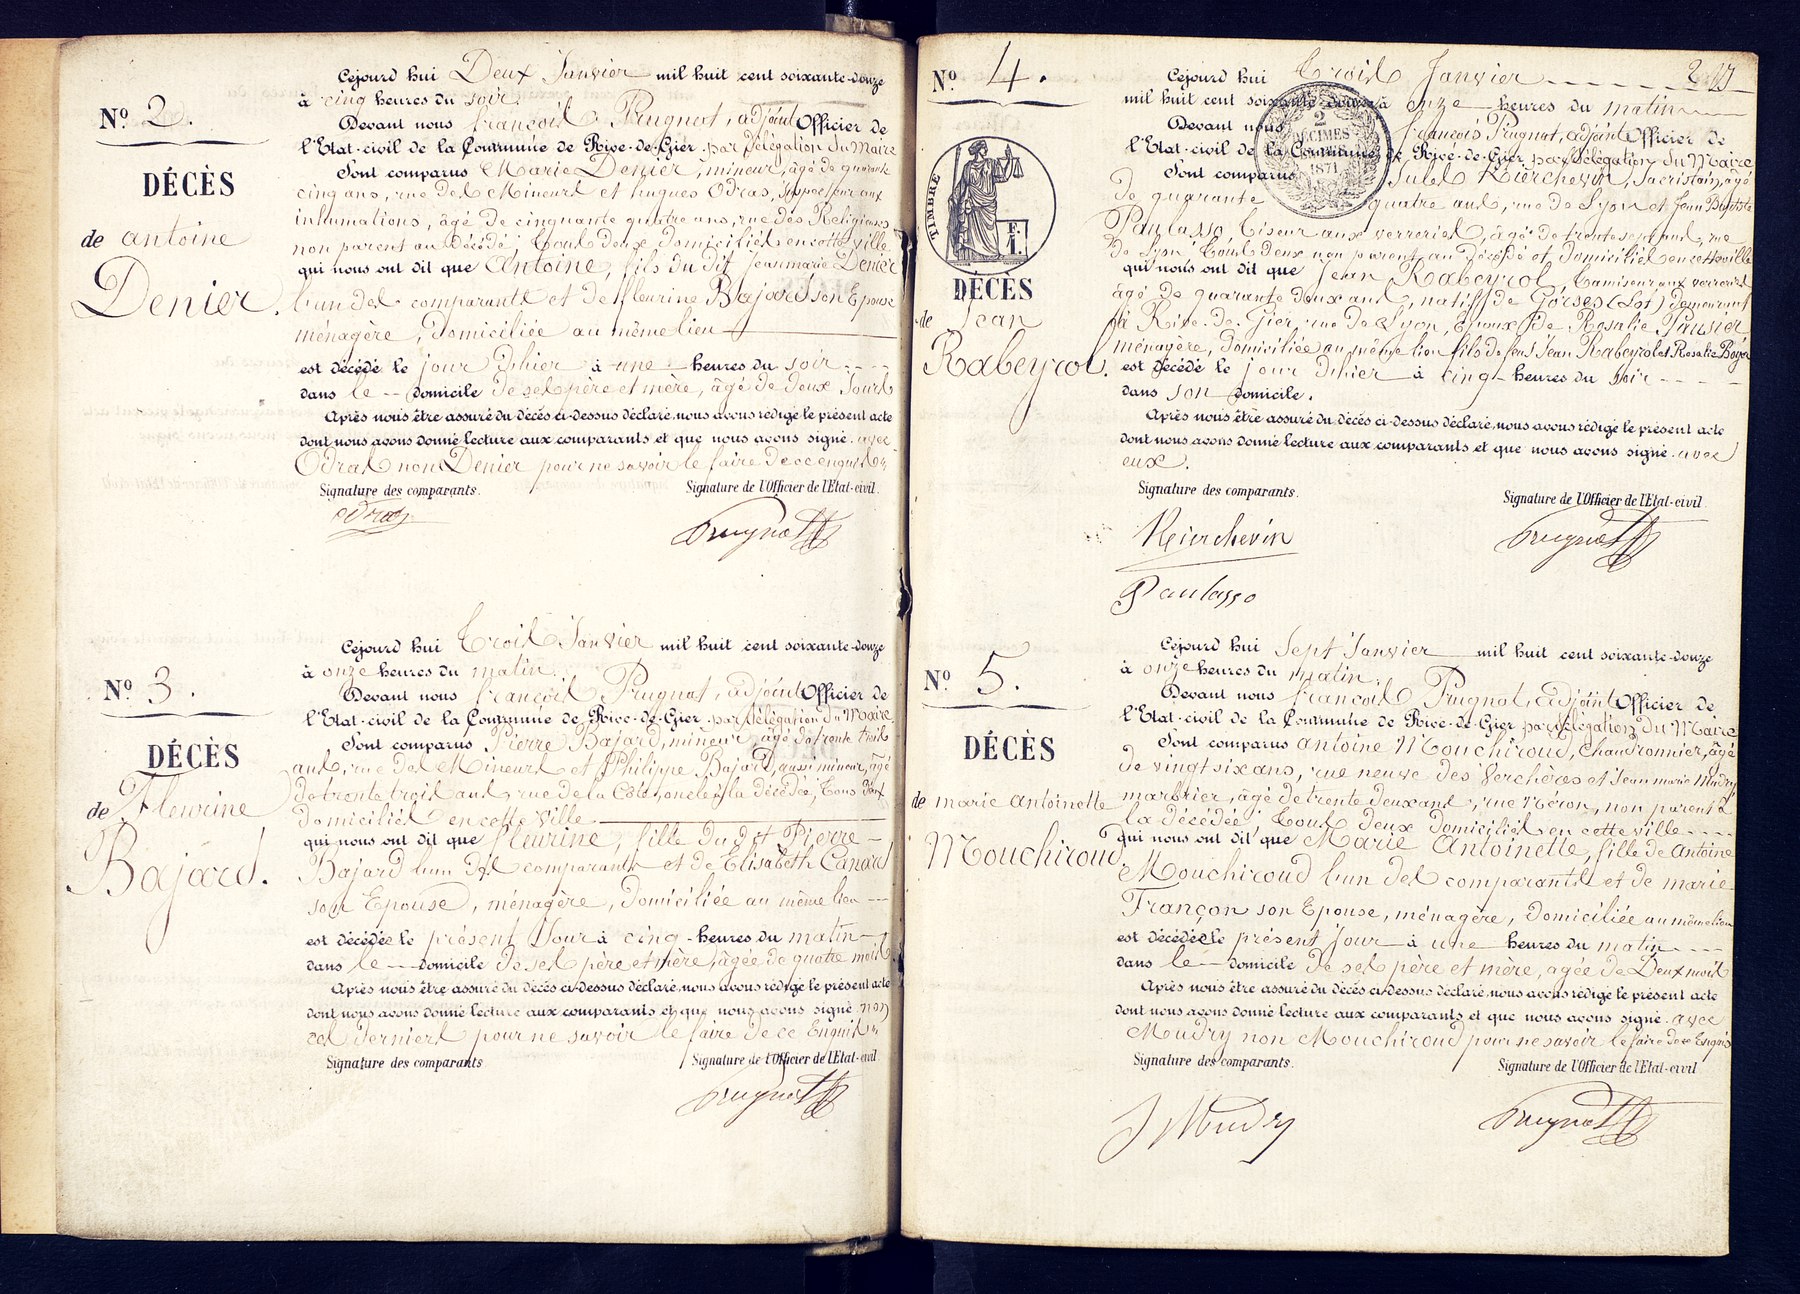 Nº 2.
DÉCÈS
de antoine
Denier.
Cejourd hui Deux Janvier mil huit cent soixante-douze
à cinq heures du soir
Devant nous françois Prugnat, adjoint Officier de
l'Etat-civil de la Commune de Rive-de-Gier par délégation du Maire
Sont comparus Marie Denier, mineur, âgé de quarante
cinq ans, rue des Mineurs et hugues Odras, inspecteur aux
inhumations, âgé de cinquante quatre ans, rue des Religieuses
non parent au décédé, tous deux domiciliés en cette ville
qui nous ont dit que Antoine, fils du dit Jean marie Denier
l'un des comparants et de fleurine Bajard son Epouse
ménagère, domiciliée au même lieu
est décédé le jour d'hier à une heures du soir
dans le domicile de ses père et mère, âgé de deux Jours
Après nous être assuré du décès ci-dessus déclaré, nous avons rédigé le présent acte
dont nous avons donné lecture aux comparants et que nous avons signé avec
Odras non Denier pour ne savoir le faire de ce enquis
Signature des comparants. Signature de l'Officier de l'Etat-civil.
Odras Prugnat
Nº 3.
DÉCÈS
de Fleurine
Bajard.
Cejourd hui Trois Janvier mil huit cent soixante-douze
à onze heures du matin.
Devant nous françois Prugnat, adjoint Officier de
l'Etat-civil de la Commune de Rive-de-Gier par délégation du Maire
Sont comparus Pierre Bajard, mineur âgé de trente trois
ans, rue des Mineurs et Philippe Bajard, aussi mineur, âgé
de trente trois ans, rue de la Côte, oncle à la décédée, Tous deux
domiciliés en cette ville
qui nous ont dit que fleurine, fille du dit Pierre
Bajard l'un des comparants et de Elisabeth Canard
son Epouse, ménagère, domiciliée au même lieu
est décédée le présent Jour à cinq heures du matin
dans le domicile de ses père et mère, âgée de quatre mois
Après nous être assuré du décès ci-dessus déclaré, nous avons rédigé le présent acte
dont nous avons donné lecture aux comparants et que nous avons signé non
ces derniers pour ne savoir le faire de ce Enquis
Signature des comparants Signature de l'Officier de l'Etat-civil
Prugnat
Nº 4.
TIMBRE
F.
1.
DÉCÈS
de Jean
Rabeyrol.
2
DÉCIMES
1871
Cejourd hui Trois Janvier
mil huit cent soixante-douze à onze heures du matin
Devant nous françois Prugnat, adjoint Officier de
l'Etat-civil de la Commune de Rive-de-Gier par délégation du Maire
Sont comparus Jules Kierchevin, Sacristain, âgé
de quarante quatre ans, rue de Lyon et Jean Baptiste
Paulasso tiseur aux verreries, âgé de trente sept ans, rue
de Lyon, Tous deux non parent au décédé et domiciliés en cette ville
qui nous ont dit que Jean Rabeyrol, tamiseur aux verreries
âgé de quarante deux ans, natif de Gorses (Lot) demeurant
à Rive-de-Gier, rue de Lyon, Epoux de Rosalie
ménagère, domiciliée au même lieu fils de feus Jean Rabeyrol et Rosalie Boyer
est décédé le jour d'hier à cinq heures du soir
dans son domicile.
Après nous être assuré du décès ci-dessus déclaré, nous avons rédigé le présent acte
dont nous avons donné lecture aux comparants et que nous avons signé avec
eux.
Signature des comparants. Signature de l'Officier de l'Etat-civil
Kierchevin Prugnat
Paulasso
Nº 5.
DÉCÈS
de marie antoinette
Mouchiroud.
Cejourd hui Sept Janvier mil huit cent soixante-douze
à onze heures du matin.
Devant nous françois Prugnat, adjoint Officier de
l'Etat-civil de la Commune de Rive-de-Gier par délégation du Maire
Sont comparus antoine Mouchiroud, Chaudronnier, âgé
de vingt six ans, rue neuve des Verchères et Jean marie Mudry
marbrier, âgé de trente deux ans, rue Néron, non parent à
la décédée Tous deux domiciliés en cette ville
qui nous ont dit que Marie Antoinette, fille de Antoine
Mouchiroud l'un des comparants et de marie
Françon son Epouse, ménagère, domiciliée au même lieu
est décédée le présent jour à une heures du matin
dans le domicile de ses père et mère, agée de Deux mois
Après nous être assuré du décès ci-dessus déclaré, nous avons rédigé le présent acte
dont nous avons donné lecture aux comparants et que nous avons signé avec
Mudry non Mouchiroud pour ne savoir le faire de ce Enquis
Signature des comparants. Signature de l'Officier de l'Etat-civil
J Mudry Prugnat